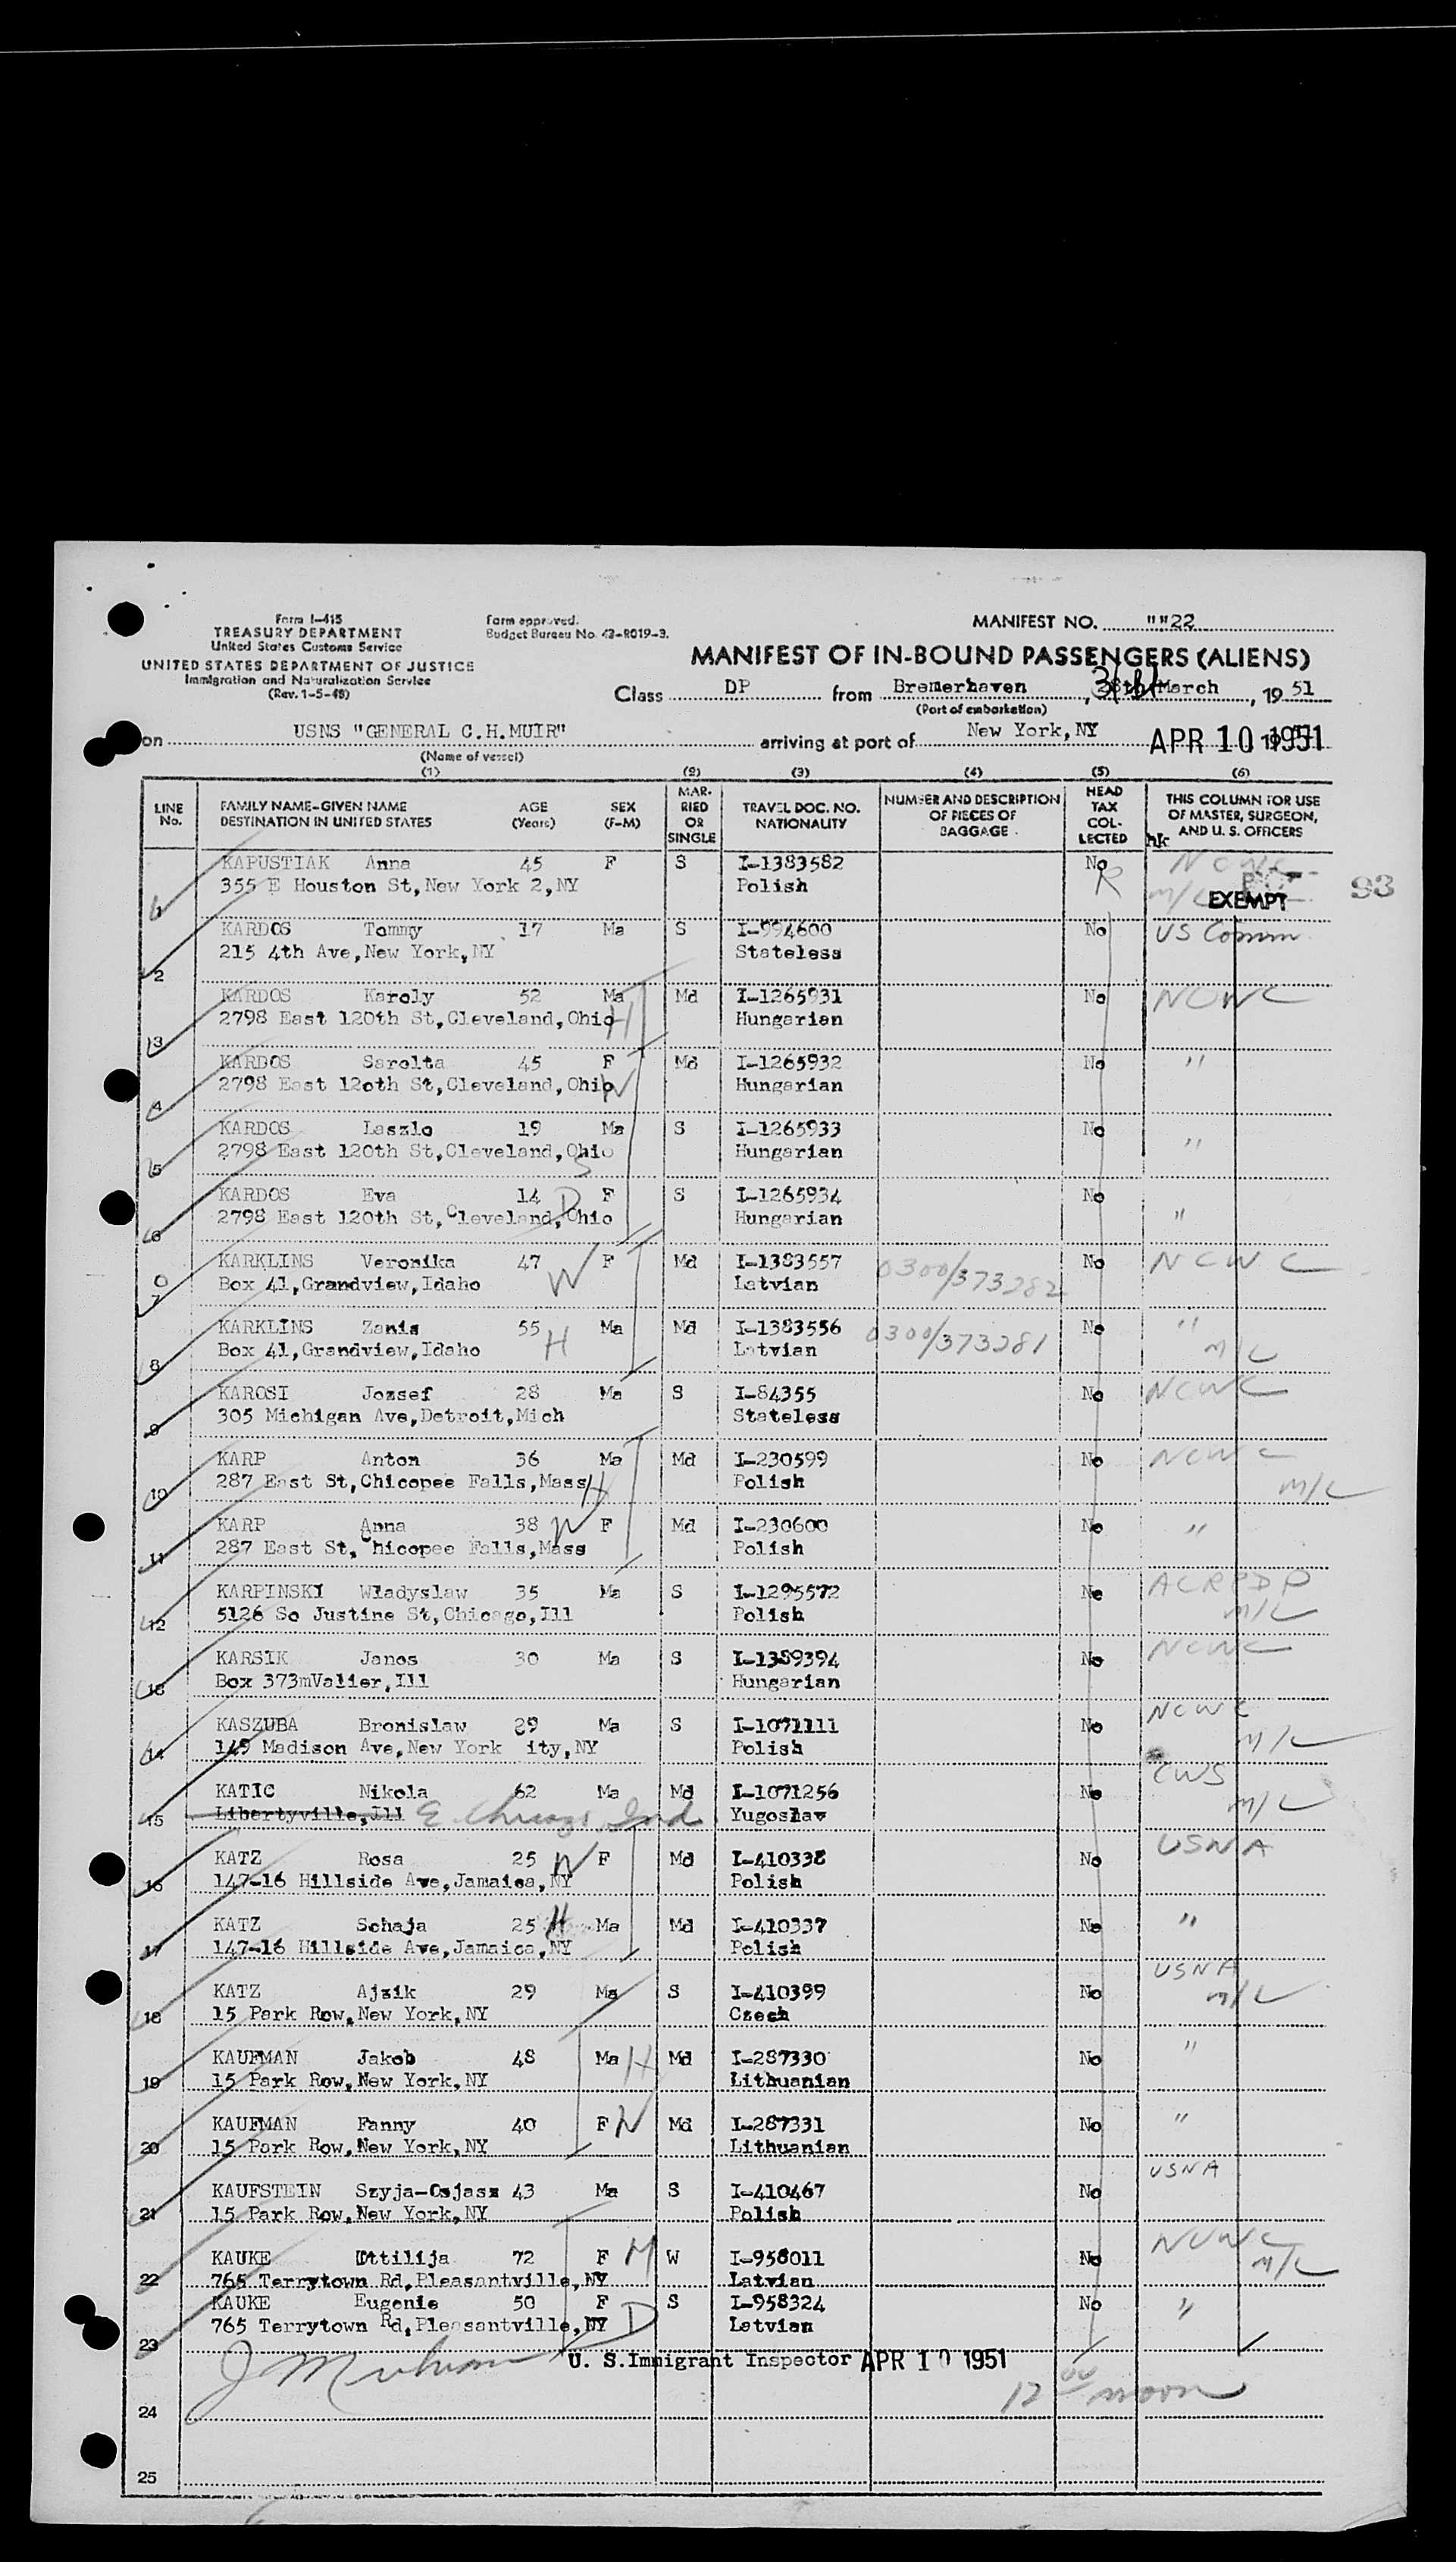 Form I-415
TREASURY DEPARTMENT
United States Customs Service
UNITED STATES DEPARTMENT OF JUSTICE
Immigration and Naturalization Service
(Rev. 1-5-48)
Form approved.
Budget Bureau No. 43-R019-3.
MANIFEST NO. ""22
MANIFEST OF IN-BOUND PASSENGERS (ALIENS)
Class DP from Bremerhaven, 28th March, 19 51
(Port of embarkation)
on USNS "GENERAL C.H.MUIR" arriving at port of New York, NY APR 10 1951
(Name of vessel)
(1) (2) (3) (4) (5) (6)
LINE No. FAMILY NAME-GIVEN NAME DESTINATION IN UNITED STATES AGE (Years) SEX (F-M) MARRIED OR SINGLE TRAVEL DOC. NO. NATIONALITY NUMBER AND DESCRIPTION OF PIECES OF BAGGAGE HEAD TAX COLLECTED THIS COLUMN FOR USE OF MASTER, SURGEON, AND U. S. OFFICERS
hk
1 KAPUSTIAK Anna 45 F S I-1383582 No NCWC
355 E Houston St, New York 2, NY Polish R M/L EXEMPT 93
2 KARDOS Tommy 17 Ma S I-994600 No US Comm
215 4th Ave, New York, NY Stateless
3 KARDOS Karoly 52 Ma Md I-1265931 No NCWC
2798 East 120th St, Cleveland, Ohio H Hungarian
4 KARDOS Sarolta 45 F Md I-1265932 No "
2798 East 120th St, Cleveland, Ohio W Hungarian
5 KARDOS Laszlo 19 Ma S I-1265933 No "
2798 East 120th St, Cleveland, Ohio S Hungarian
6 KARDOS Eva 14 D F S I-1265934 No "
2798 East 120th St, Cleveland, Ohio Hungarian
7 KARKLINS Veronika 47 W F Md I-1383557 0300/373282 No NCWC
Box 41, Grandview, Idaho Latvian
8 KARKLINS Zanis 55 H Ma Md I-1383556 0300/373281 No "
Box 41, Grandview, Idaho Latvian M/L
9 KAROSI Jozsef 28 Ma S I-84355 No NCWC
305 Michigan Ave, Detroit, Mich Stateless
10 KARP Anton 36 Ma Md I-230599 No NCWC
287 East St, Chicopee Falls, Mass H Polish M/L
11 KARP Anna 38 W F Md I-230600 No "
287 East St, Chicopee Falls, Mass Polish
12 KARPINSKI Wladyslaw 35 Ma S I-1295572 No ACRPDP
5126 So Justine St, Chicago, Ill Polish M/L
13 KARSIK Janos 30 Ma S I-1389394 No NCWC
Box 373mValier, Ill Hungarian
14 KASZUBA Bronislaw 29 Ma S I-1071111 No NCWC
149 Madison Ave, New York ity, NY Polish M/L
15 KATIC Nikola 62 Ma Md I-1071256 No CWS
Libertyville, Ill E. Chicago, Ind Yugoslav M/L
16 KATZ Rosa 25 W F Md I-410338 No USNA
147-16 Hillside Ave, Jamaica, NY Polish
17 KATZ Schaja 25 H Ma Md I-410337 No "
147-16 Hillside Ave, Jamaica, NY Polish
18 KATZ Ajzik 29 Ma S I-410399 No USNA
15 Park Row, New York, NY Czech M/L
19 KAUFMAN Jakob 48 Ma H Md I-287330 No "
15 Park Row, New York, NY Lithuanian
20 KAUFMAN Fanny 40 F W Md I-287331 No "
15 Park Row, New York, NY Lithuanian
21 KAUFSTEIN Szyja-Osjasz 43 Ma S I-410467 No USNA
15 Park Row, New York, NY Polish
22 KAUKE Ottilija 72 F M W I-958011 No NCWC
765 Terrytown Rd, Pleasantville, NY Latvian M/L
23 KAUKE Eugenie 50 F S I-958324 No "
765 Terrytown Rd, Pleasantville, NY D Latvian
U. S. Immigrant Inspector APR 10 1951
12 00 noon
24
25